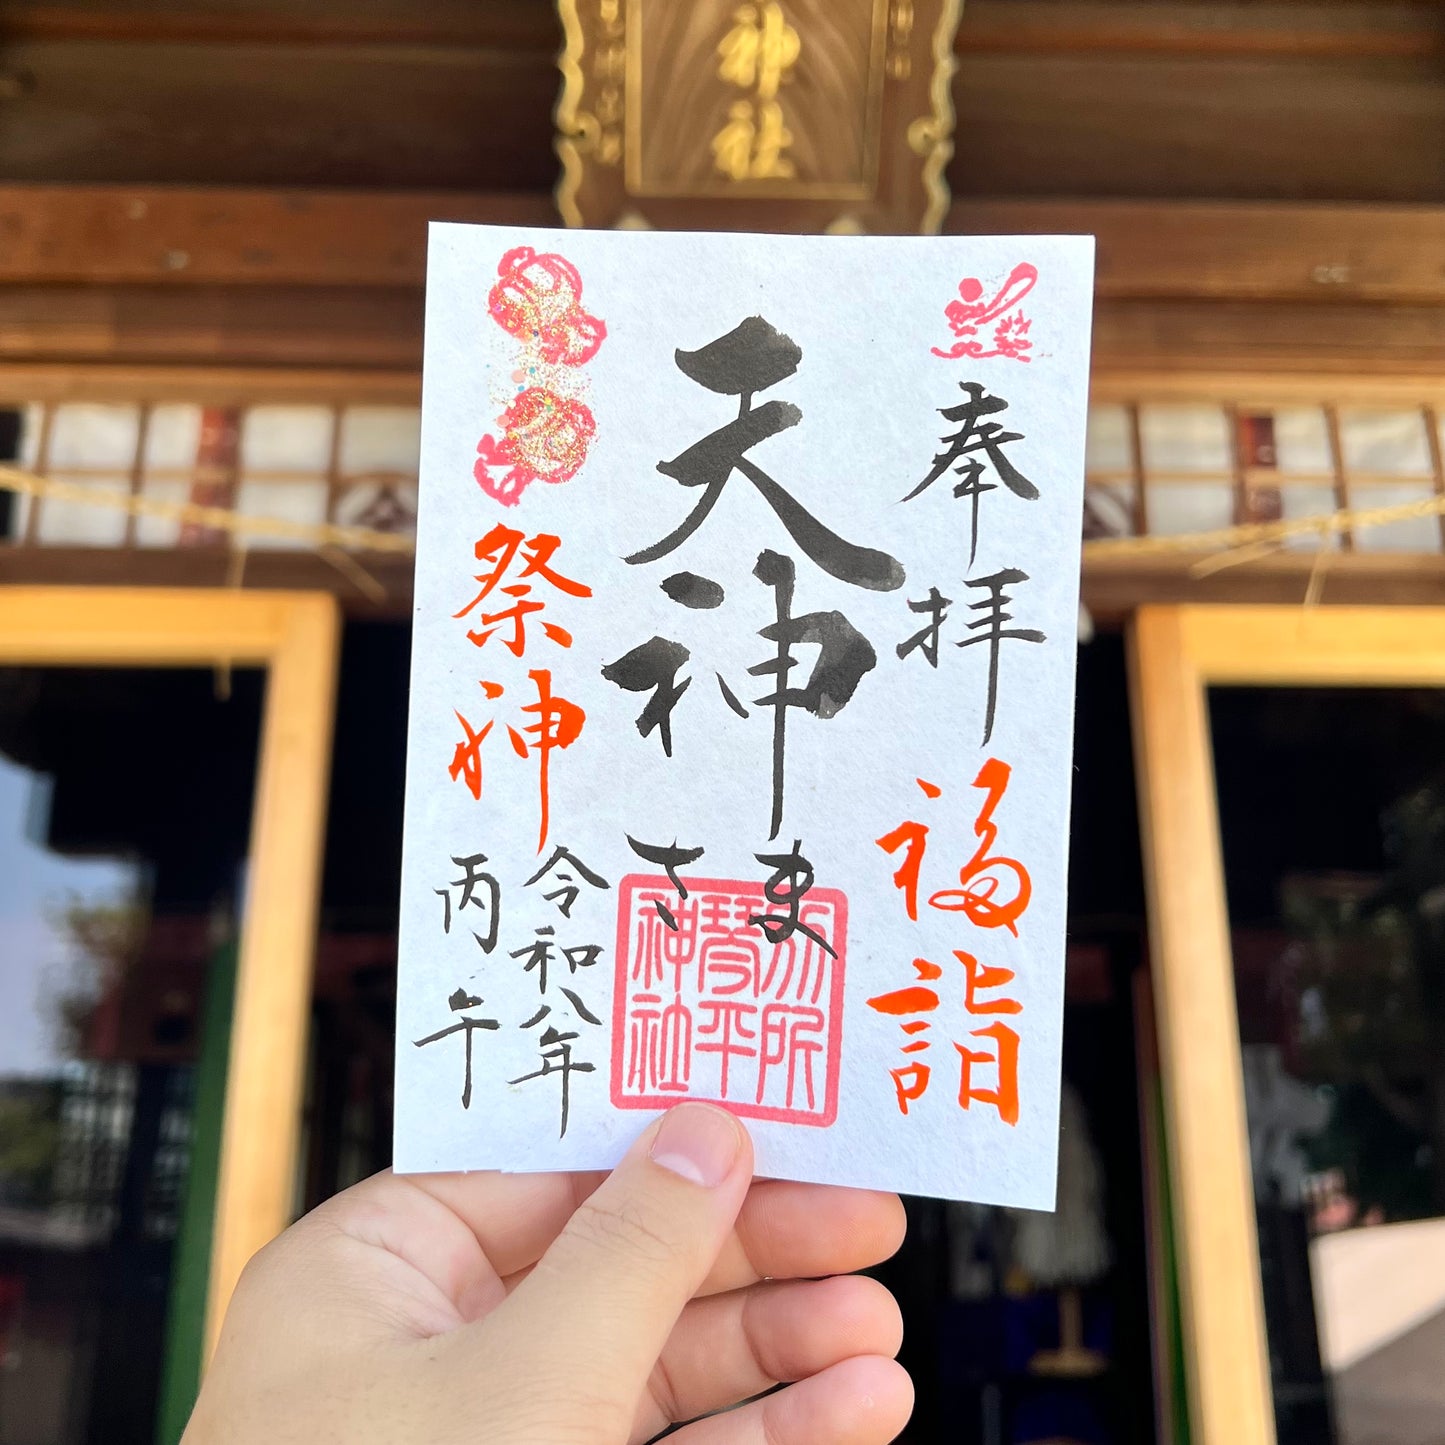 神社
奉拝
福詣
天神
さま
所
琴平
神社
祭神
令和八年
丙午